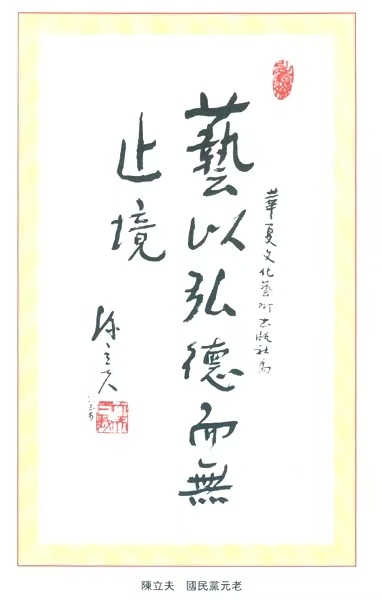 華夏文化藝術出版社
藝以弘德而無
止境
陳立夫
陳立夫　國民黨元老